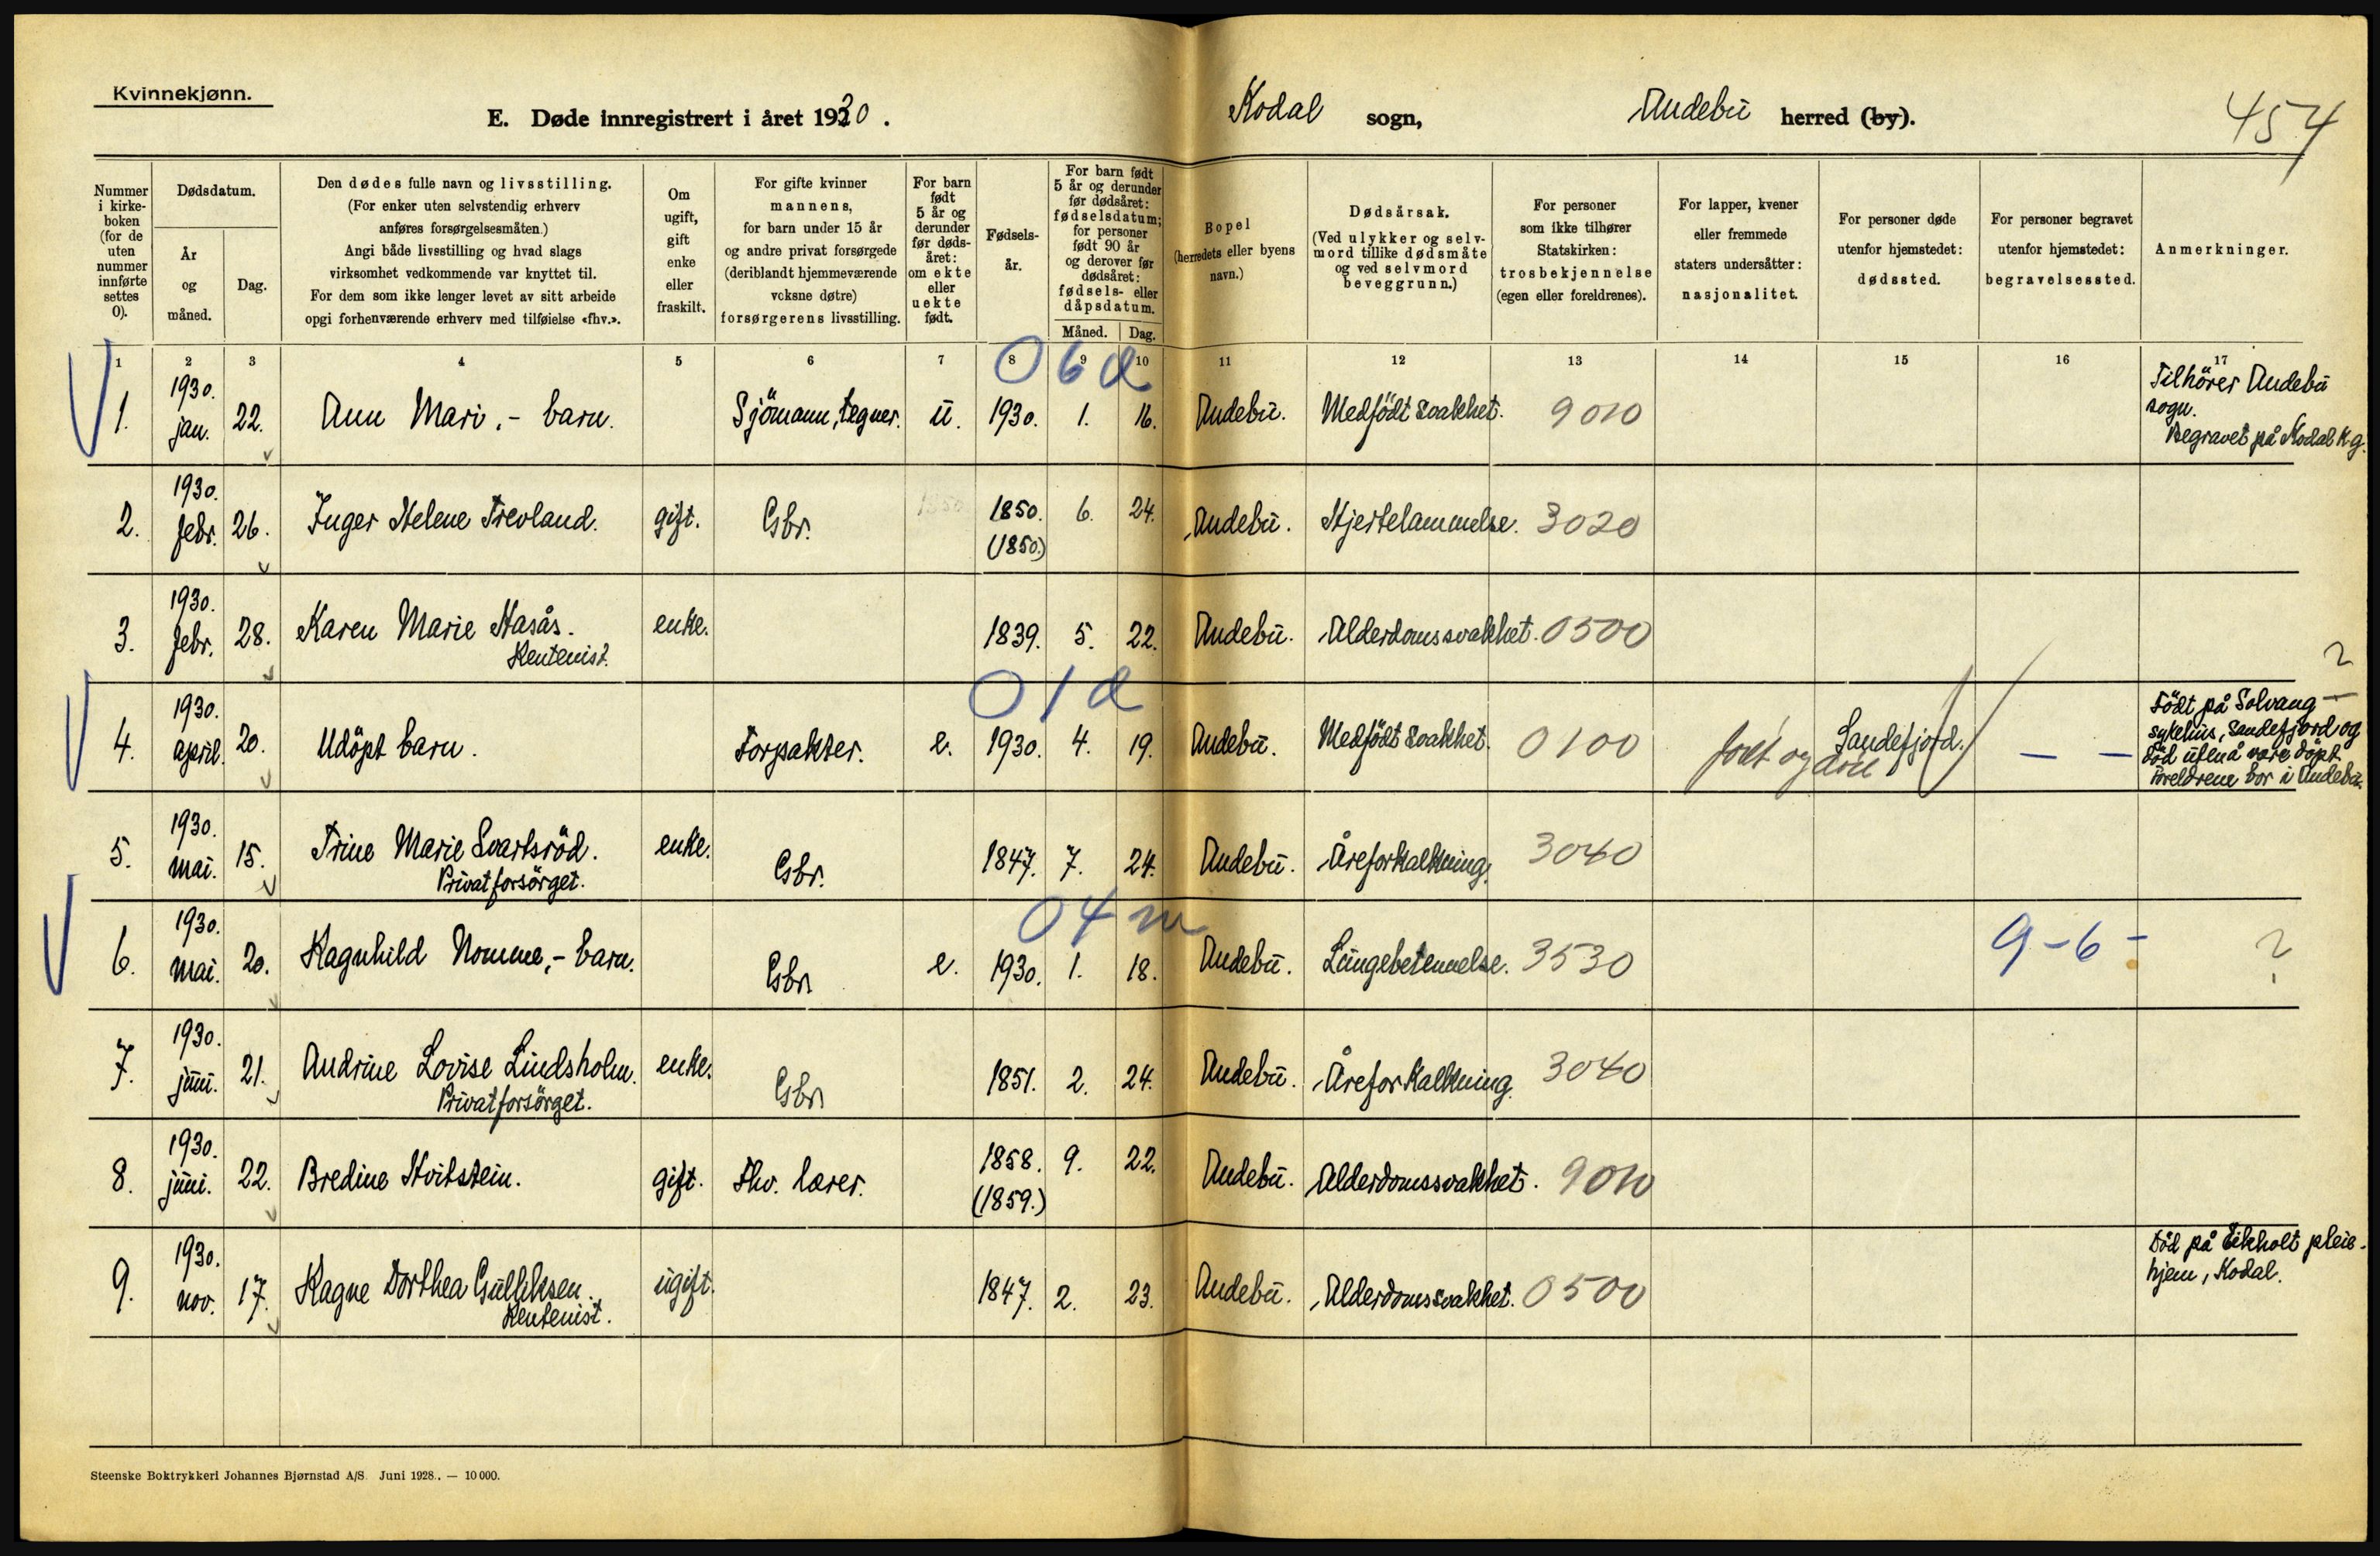 Kvinnekjønn.
E. Døde innregistrert i året 1930.
Kodal sogn,
Andebu herred (by).
454
Nummer i kirke-boken (for de uten nummer innførte settes 0).
Dødsdatum.
År og måned.
Dag.
Den dødes fulle navn og livsstilling.
(For enker uten selvstendig erhverv
anføres forsørgelsesmåten.)
Angi både livsstilling og hvad slags
virksomhet vedkommende var knyttet til.
For dem som ikke lenger levet av sitt arbeide
opgi forhenværende erhverv med tilføielse «fhv.».
Om ugift, gift enke eller fraskilt.
For gifte kvinner
mannens,
for barn under 15 år
og andre privat forsørgede
(deriblandt hjemmeværende
voksne døtre)
forsørgerens livsstilling.
For barn født 5 år og derunder før døds-året: om ekte eller uekte født.
Fødsels-år.
For barn født
5 år og derunder
før dødsåret:
fødselsdatum;
for personer
født 90 år
og derover før
dødsåret:
fødsels- eller
dåpsdatum.
Måned. Dag.
Bopel
(herredets eller byens
navn.)
Dødsårsak.
(Ved ulykker og selv-
mord tillike dødsmåte
og ved selvmord
beveggrunn.)
For personer
som ikke tilhører
Statskirken:
trosbekjennelse
(egen eller foreldrenes).
For lapper, kvener
eller fremmede
staters undersåtter:
nasjonalitet.
For personer døde
utenfor hjemstedet:
dødssted.
For personer begravet
utenfor hjemstedet:
begravelsessted.
Anmerkninger.
1 2 3 4 5 6 7 8 9 10 11 12 13 14 15 16 17
06d
1. 1930. jan. 22. Ann Mari, - barn. Sjömann, tegner. u. 1930. 1. 16. Andebu. Medfödt svakhet. 9010
Tilhörer Andebu
sogn.
Begravet på Kodal kg.
2. 1930. febr. 26. Inger Helene Trevland. gift. Gbr. 1850. (1850.) 6. 24. Andebu. Hjertelammelse. 3020
3. 1930. febr. 28. Karen Marie Hasås. Rentenist. enke. 1839. 5. 22. Andebu. Alderdomssvakhet. 0500
?
01d
4. 1930. april. 20. Udöpt barn. Forpakter. e. 1930. 4. 19. Andebu. Medfödt svakhet. 0100 født og død Sandefjord. — —
Födt på Solvang
sykehus, Sandefjord og
död uten å være döpt.
Foreldrene bor i Andebu.
5. 1930. mai. 15. Trine Marie Svartsröd. Privat forsörget. enke. Gbr. 1847. 7. 24. Andebu. Åreforkalkning. 3040
04m
6. 1930. mai. 20. Ragnhild Nomme, - barn. Gbr. e. 1930. 1. 18. Andebu. Lungebetennelse. 3530 9-6- ?
7. 1930. juni. 21. Andrine Lovise Lindsholm. Privat forsörget. enke. Gbr. 1851. 2. 24. Andebu. Åreforkalkning. 3040
8. 1930. juni. 22. Bredine Hvitstein. gift. Fhv. lærer. 1858. (1859.) 9. 22. Andebu. Alderdomssvakhet. 9010
9. 1930. nov. 17. Ragne Dorthea Gulliksen. Rentenist. ugift. 1847. 2. 23. Andebu. Alderdomssvakhet. 0500
Död på Eikholt pleie-
hjem, Kodal.
Steenske Boktrykkeri Johannes Bjørnstad A/S. Juni 1928. — 10 000.